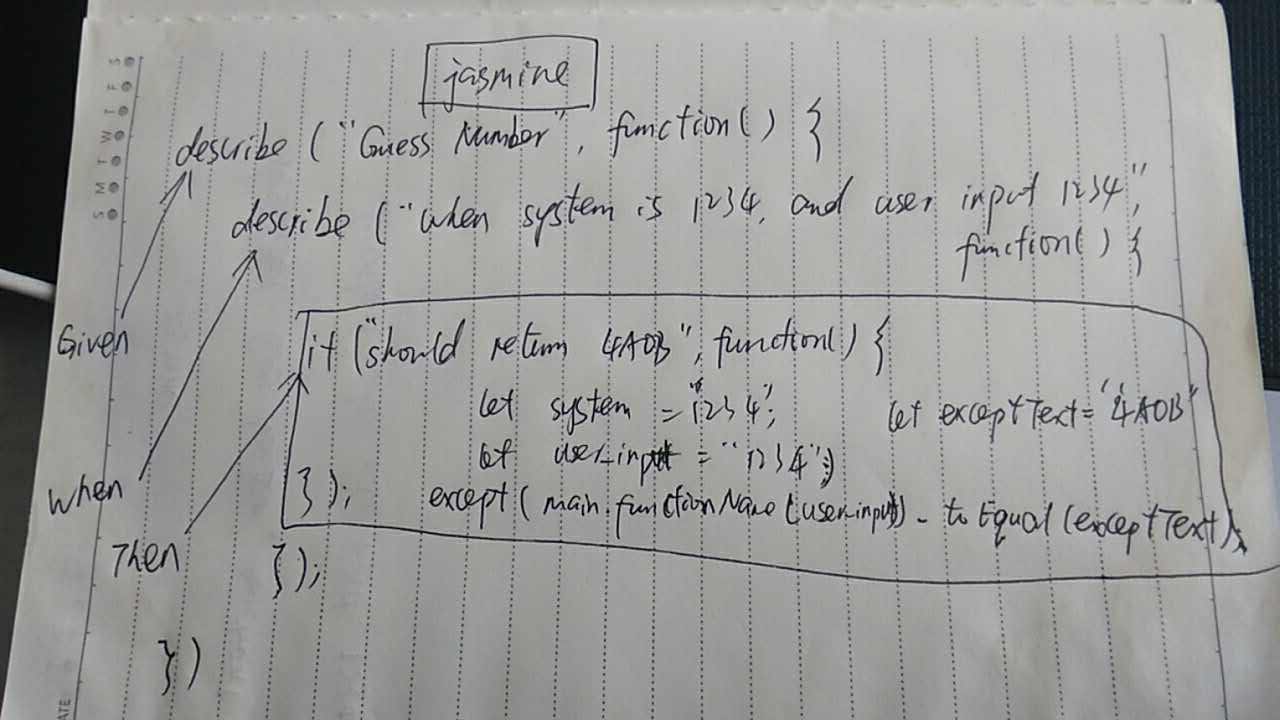 jasmine
describe ("Guess Number", function() {
describe ("when system is 1234, and user input 1234",
function() {
Given
it ("should return 4A0B", function() {
let system = "1234";
let exceptText = "4A0B"
let user_input = "1234";
when
});
except( main.functionName(user_input). toEqual(exceptText);
Then
});
})
S M T W T F S
ATE